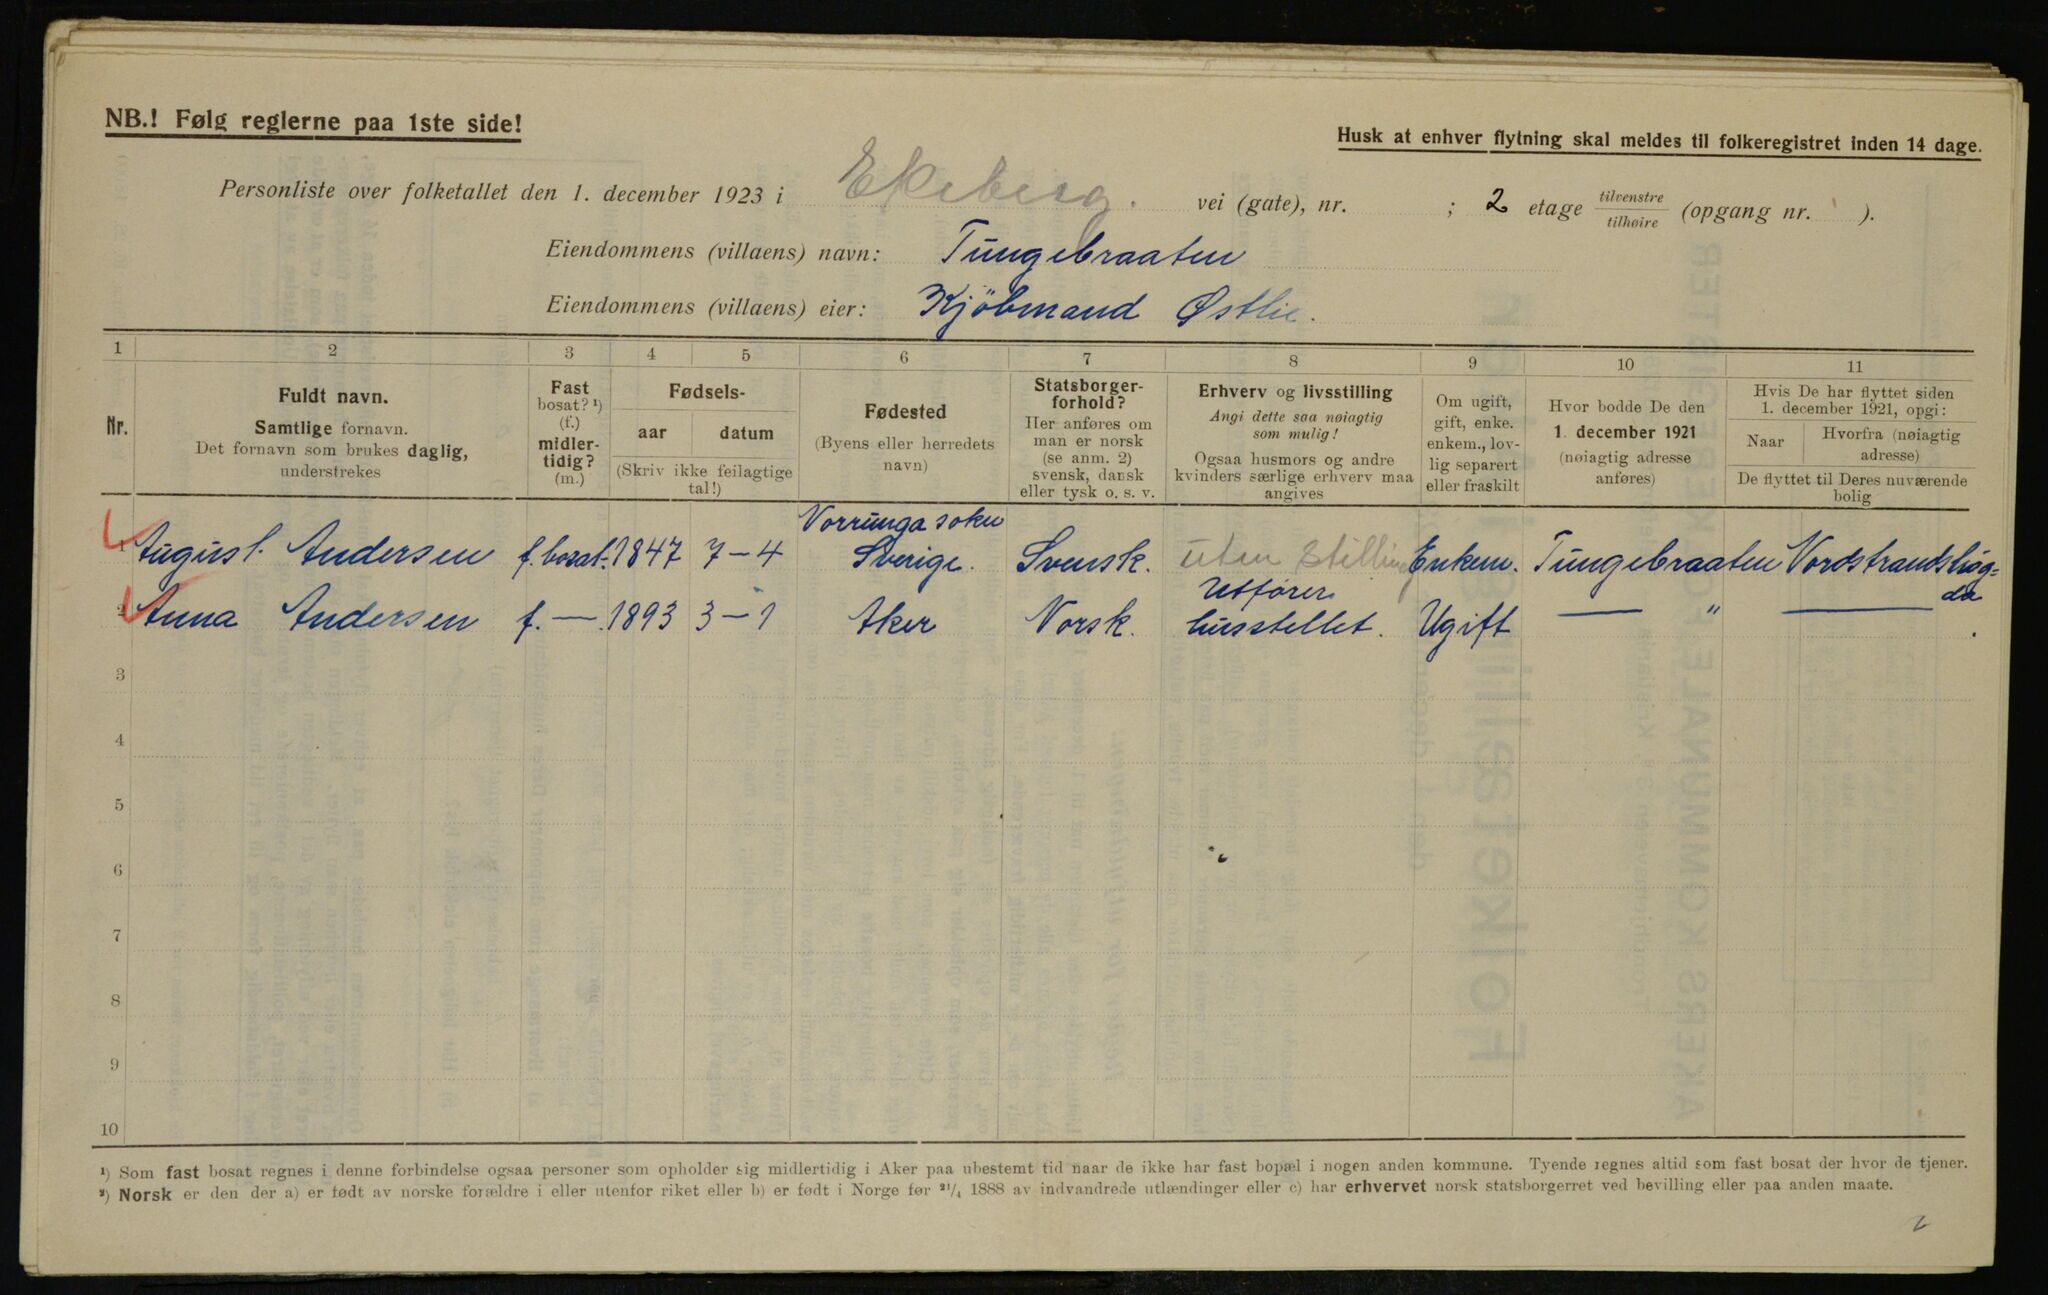 NB.! Følg reglerne paa 1ste side!
Husk at enhver flytning skal meldes til folkeregistret inden 14 dage.
Personliste over folketallet den 1. december 1923 i Ekeberg. vei (gate), nr. ; 2 etage tilvenstre / tilhøire (opgang nr. ).
Eiendommens (villaens) navn: Tungebraaten
Eiendommens (villaens) eier: Kjöbmand Østlie.
1 2 3 4 5 6 7 8 9 10 11
Nr.
Fuldt navn.
Samtlige fornavn.
Det fornavn som brukes daglig,
understrekes
Fast
bosat? ¹)
(f.)
midler-
tidig?
(m.)
Fødsels-
aar datum
(Skriv ikke feilagtige
tal!)
Fødested
(Byens eller herredets
navn)
Statsborger-
forhold?
Her anføres om
man er norsk
(se anm. 2)
svensk, dansk
eller tysk o. s. v.
Erhverv og livsstilling
Angi dette saa nøiagtig
som mulig!
Ogsaa husmors og andre
kvinders særlige erhverv maa
angives
Om ugift,
gift, enke.
enkem., lov-
lig separert
eller fraskilt
Hvor bodde De den
1. december 1921
(nøiagtig adresse
anføres)
Hvis De har flyttet siden
1. december 1921, opgi:
Naar
Hvorfra (nøiagtig
adresse)
De flyttet til Deres nuværende
bolig
Vorrunga soken
1 August. Andersen f. bosat. 1847 7-4 Sverige. Svensk. uten stilling Enkem. Tungebraaten Nordstrandshøg-
da
Utfører
2 Anna Andersen f. — . 1893 3-1 Aker Norsk. husstellet. Ugift — " —.
3
4
5
6
7
8
9
10
¹) Som fast bosat regnes i denne forbindelse ogsaa personer som opholder sig midlertidig i Aker paa ubestemt tid naar de ikke har fast bopæl i nogen anden kommune. Tyende regnes altid som fast bosat der hvor de tjener.
²) Norsk er den der a) er født av norske forældre i eller utenfor riket eller b) er født i Norge før ²¹/₄ 1888 av indvandrede utlændinger eller c) har erhvervet norsk statsborgerret ved bevilling eller paa anden maate.